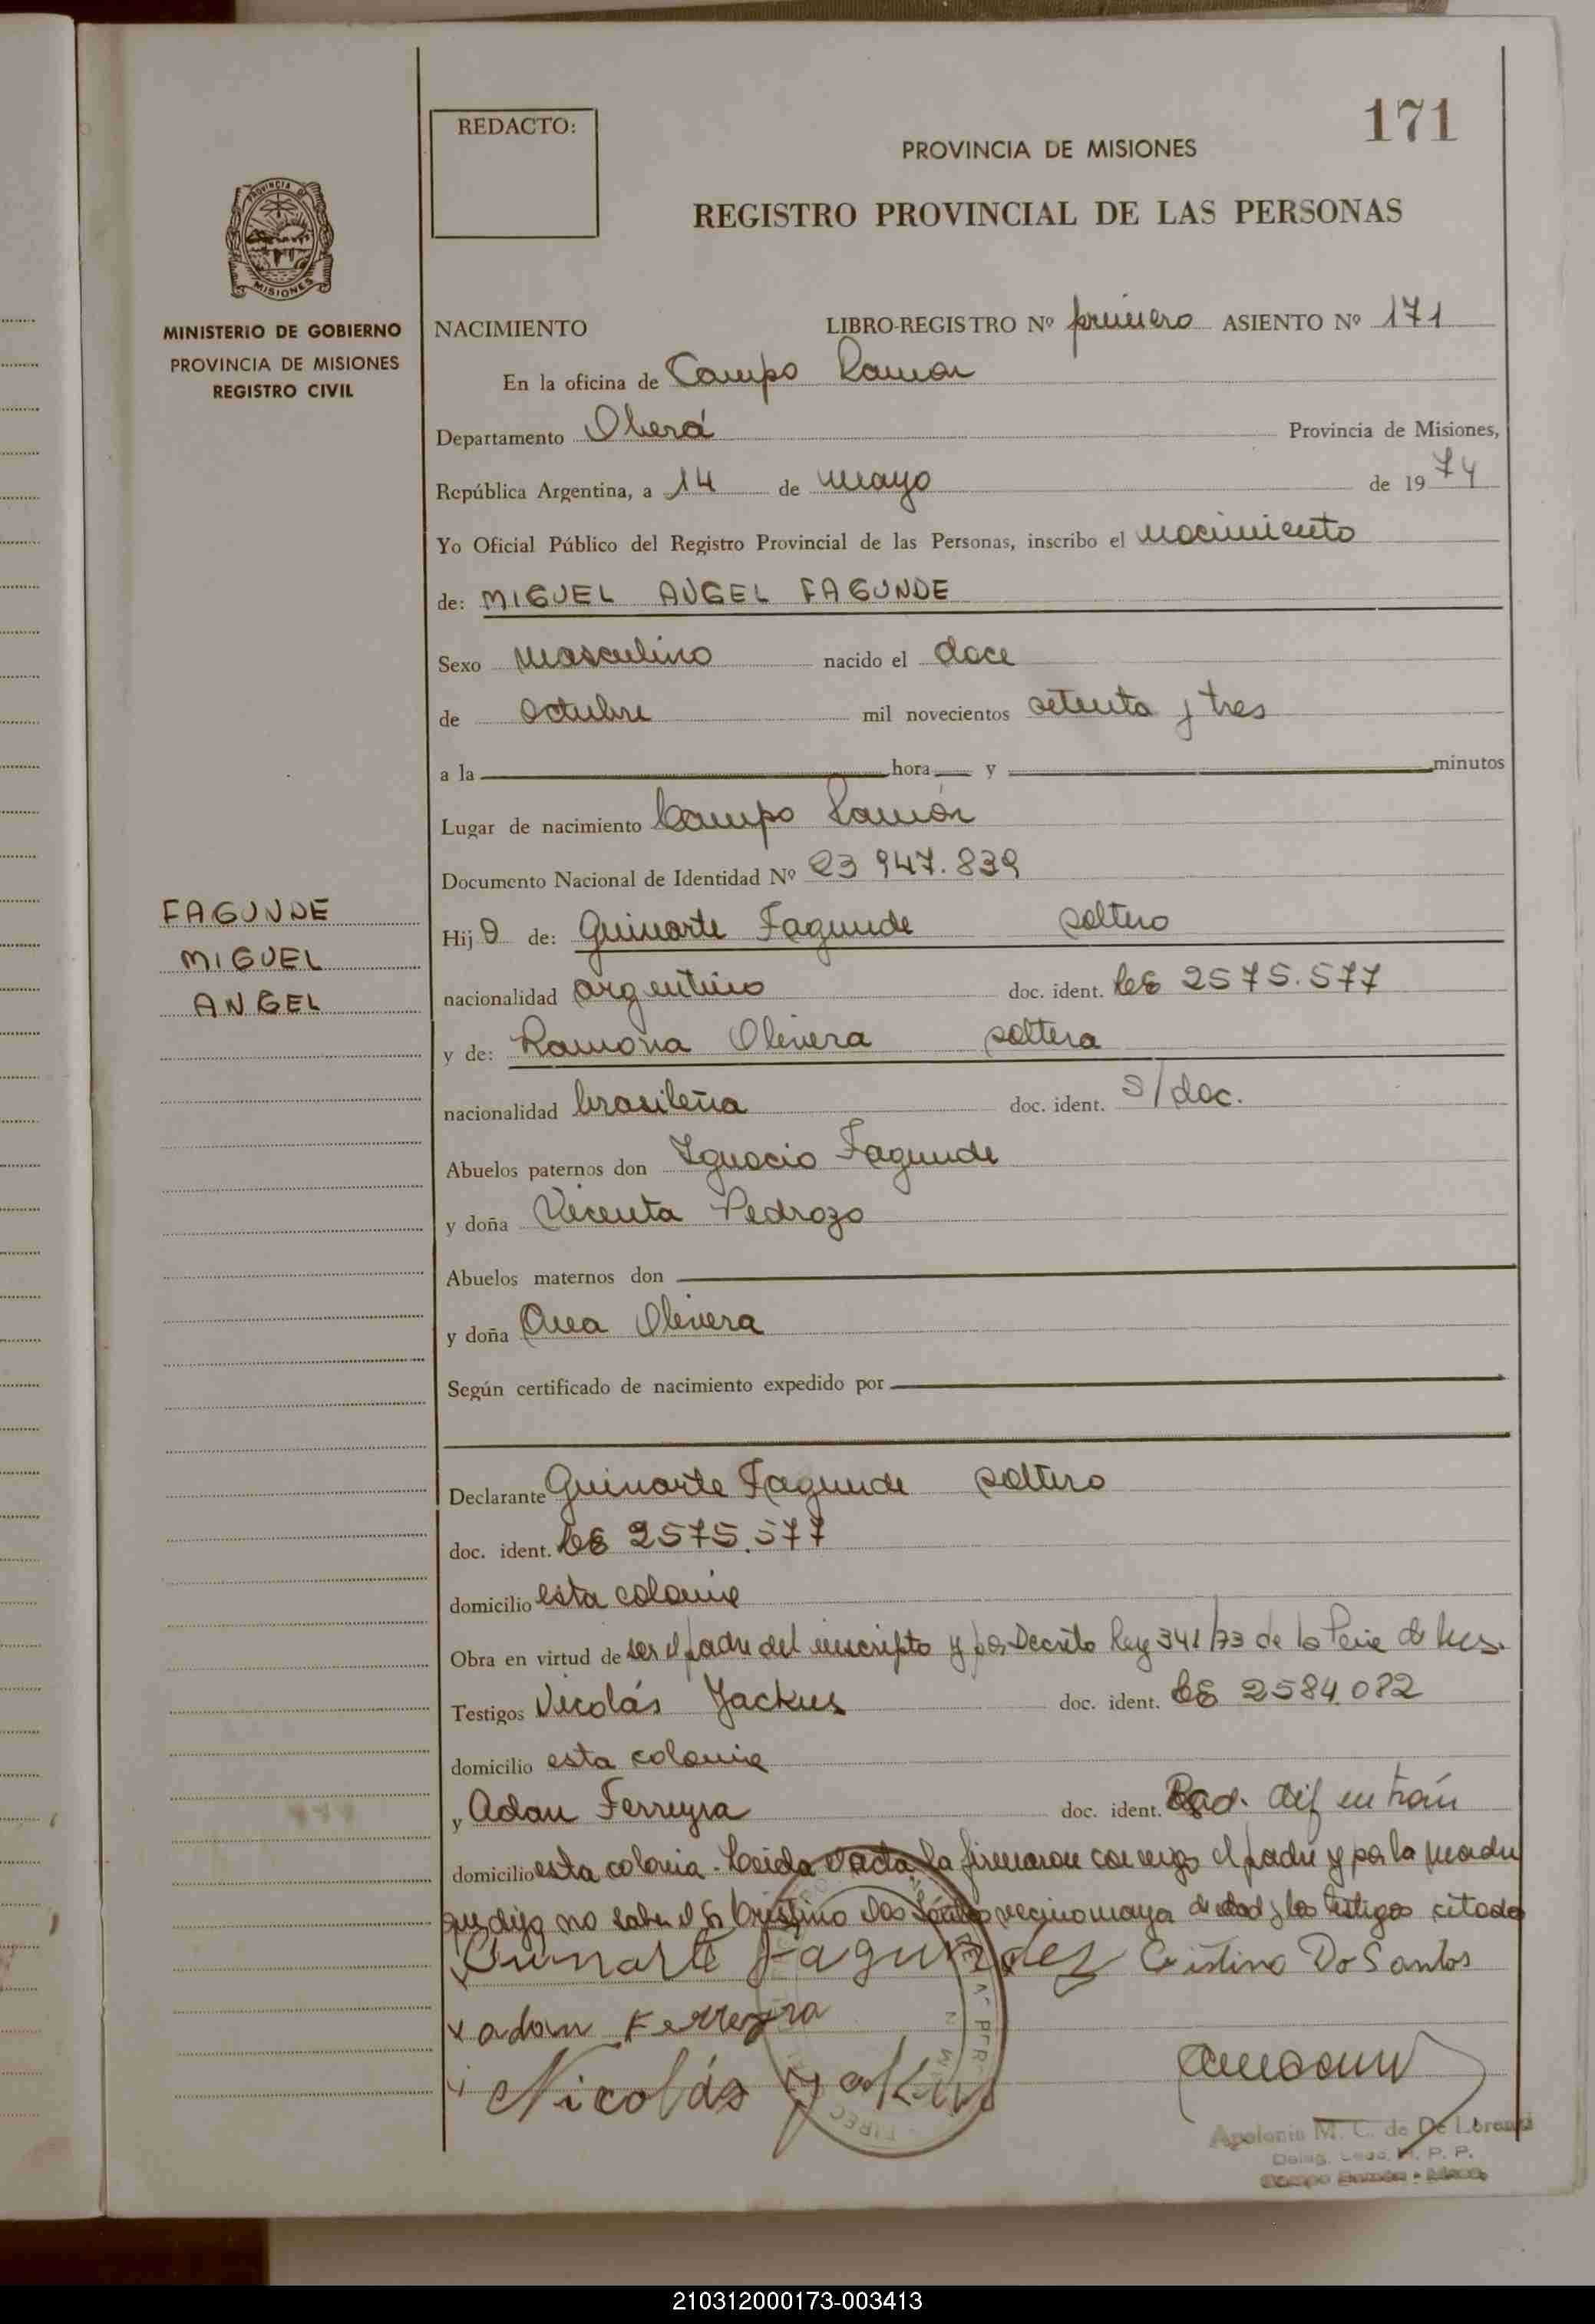 171
REDACTO:
PROVINCIA DE MISIONES
REGISTRO PROVINCIAL DE LAS PERSONAS
PROVINCIA DE
MISIONES
MINISTERIO DE GOBIERNO
PROVINCIA DE MISIONES
REGISTRO CIVIL
NACIMIENTO LIBRO-REGISTRO Nº primero ASIENTO Nº 171
En la oficina de Campo Ramon
Departamento Oberá Provincia de Misiones,
República Argentina, a 14 de mayo de 1974
Yo Oficial Público del Registro Provincial de las Personas, inscribo el nacimiento
de: MIGUEL ANGEL FAGUNDE
Sexo masculino nacido el doce
de octubre mil novecientos setenta y tres
a la hora y minutos
Lugar de nacimiento Campo Ramón
Documento Nacional de Identidad Nº 23 947.839
FAGUNDE
MIGUEL
ANGEL
Hijo de: Guinarte Fagunde soltero
nacionalidad argentino doc. ident. LE 2575.577
y de: Ramona Olivera soltera
nacionalidad brasileña doc. ident. s/doc.
Abuelos paternos don Ignacio Fagunde
y doña Vicenta Pedrozo
Abuelos maternos don
y doña Ana Olivera
Según certificado de nacimiento expedido por
Declarante Guinarte Fagunde soltero
doc. ident. LE 2575.577
domicilio esta colonia
Obra en virtud de ser el padre del inscripto y por Decreto Ley 341/73 de la Pcia de Mnes.
Testigos Nicolás Jackus doc. ident. LE 2584.082
domicilio esta colonia
y Adan Ferreyra doc. ident. Ced. Dif en trám
domicilio esta colonia. Leida el acta la firmaron conmigo el padre y por la madre
que dijo no saber el Sr Cristino Dos Santos vecino mayor de edad y los testigos citados
Guinarte Fagundez Cristino Do Santos
x adan Ferreyra
Nicolás
Apolonia M. C. de De Lorenzi
Deleg. R. P. P.
Campo Ramón - Mnes.
210312000173-003413